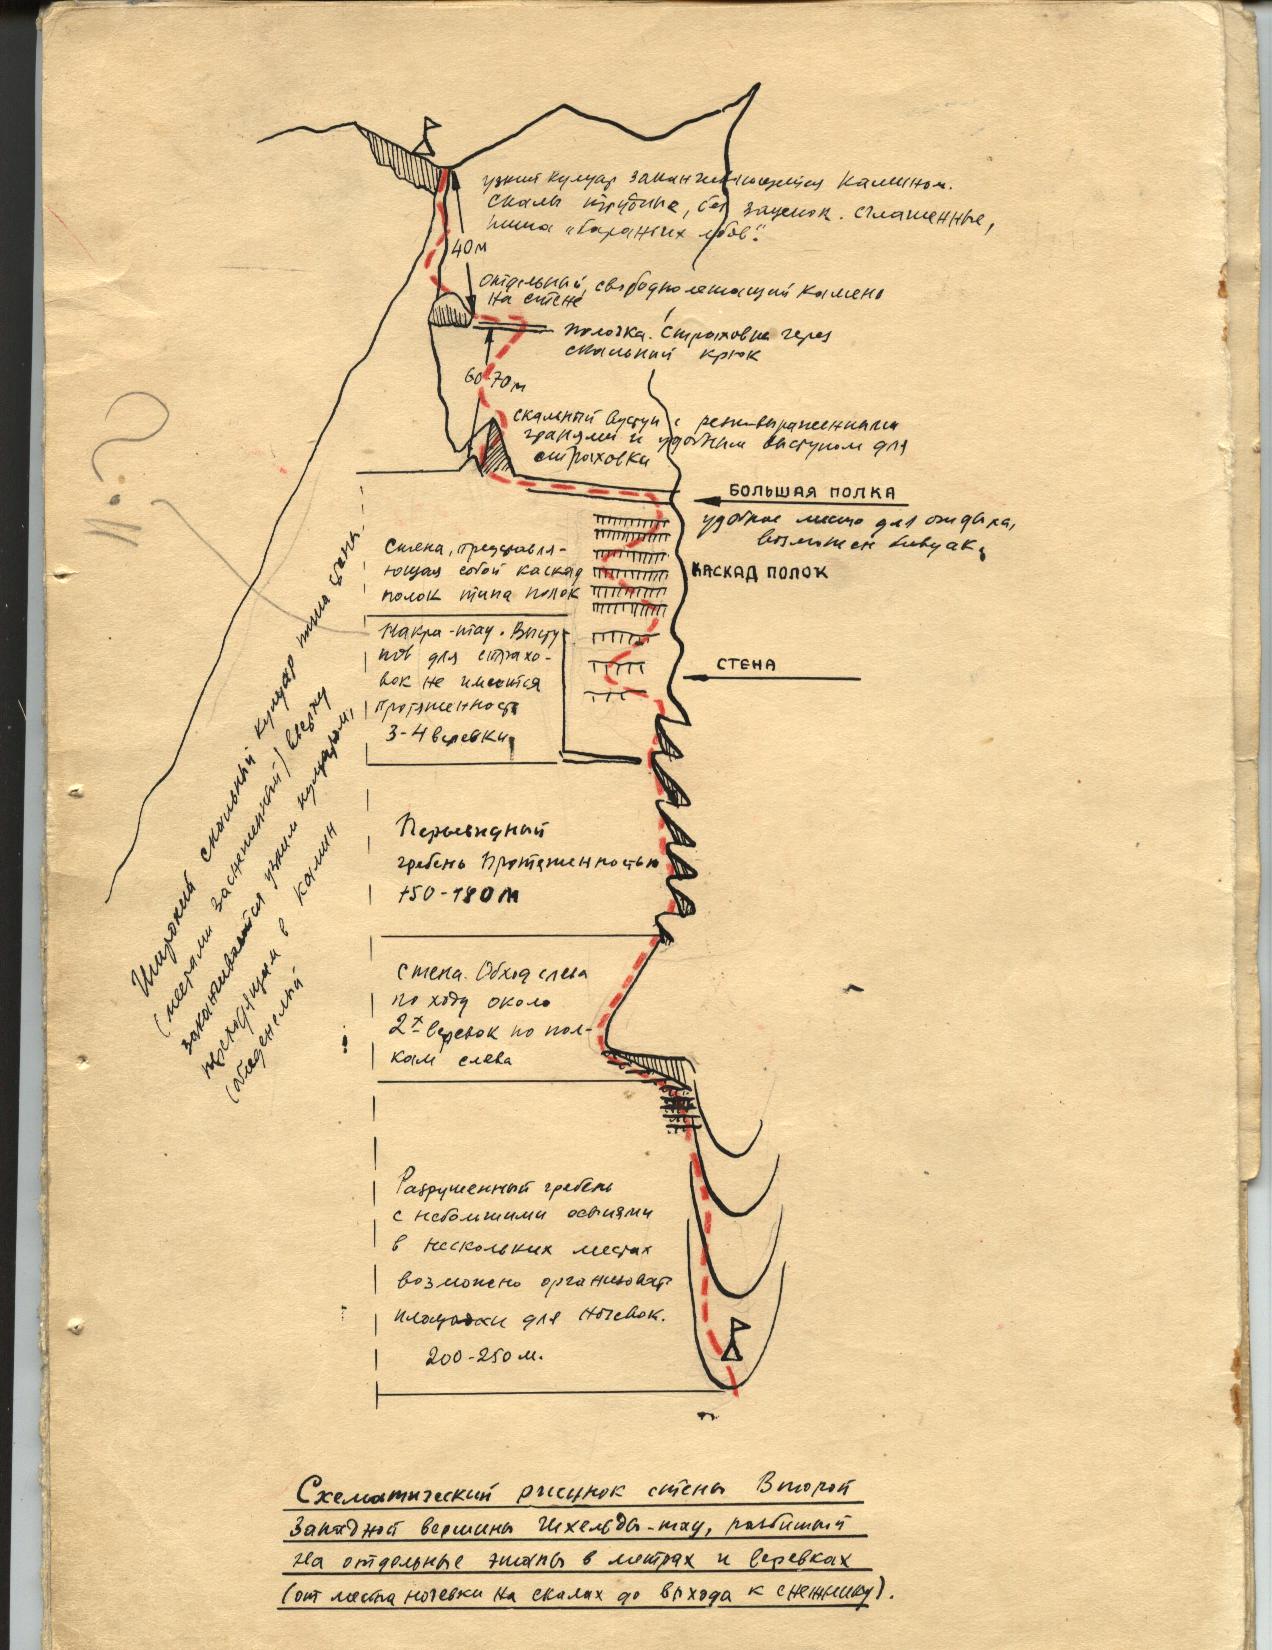 узкий кулуар заканчивающийся камином.
Скалы трудные, без зацепок. сглаженные,
типа „бараньих лбов".
40м
отдельный, свободнолежащий камень
на стене
полочка. Страховка через
скальный крюк
60 70м
скальный выступ с резковыраженными
гранями и удобным выступом для
страховки
БОЛЬШАЯ ПОЛКА
удобное место для отдыха,
возможен бивуак.
Стена, представля-
ющая собой каскад
полок типа полок
КАСКАД ПОЛОК
Накра-тау. Высту
пов для страхо-
вок не имеется
протяженность
3-4 веревки
СТЕНА
Широкий скальный кулуар типа стены
(местами заснеженный) вверху
заканчивается узким кулуаром,
переходящим в камин
(обледенелый
Перьевидный
гребень протяженностью
150-180м
Стена. Обход слева
по ходу около
2х веревок по пол-
кам слева
Разрушенный гребень
с небольшими осыпями
в нескольких местах
возможно организоват
площадки для ночевок.
200-250м.
Схематический рисунок стены Второй
Западной вершины Шхельды-тау, разбитый
на отдельные этапы в метрах и веревках
(от места ночевки на скалах до выхода к снежнику).